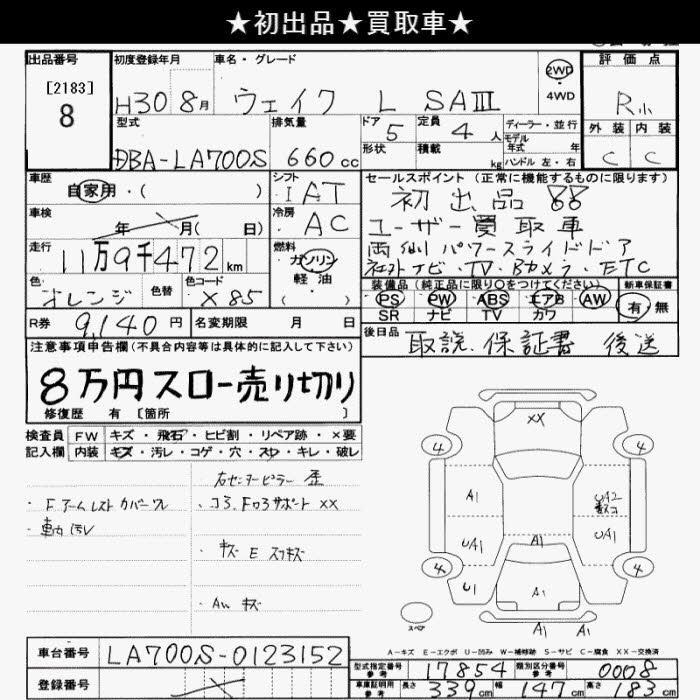 ★初出品★買取車★
出品番号 初度登録年月 車名・グレード 評価点
[2183]
8
H30 8月 ウェイク L SAIII 2WD
4WD
R小
型式 排気量 ドア 定員 ディーラー・並行 外装 内装
DBA-LA700S 660cc 5 4人 モデル年式 年
形状 積載 kg ハンドル 左・右 C C
車歴 シフト セールスポイント (正常に機能するものに限ります)
自家用・( ) IAT 初出品 88
車検 冷房 ユーザー買取車
年 月( 日) AC 両側パワースライドドア
走行 燃料 社外ナビ・TV・Bカメラ・ETC
11万9千472km ガソリン
軽油
( )
色 色替 色コード 装備品(純正品に限り○をつけてください) 新車保証書
オレンジ X85 PS PW ABS エアB AW 有・無
SR ナビ TV カワ
R券 9,140円 名変期限 月 日 後日品
取説.保証書 後送
注意事項申告欄(不具合内容等は具体的に記入して下さい)
8万円スロー売り切り
修復歴 有 [箇所 ]
検査員 FW キズ・飛石・ヒビ割・リペア跡・×要
記入欄 内装 キズ・汚レ・コゲ・穴・スレ・キレ・破レ
右センターピラー 歪
・Fアームレストカバーワレ ・コラ.Fロアサポート XX
・車内汚レ
・キズ E スリキズ
・AW キズ
XX
4 4
A1 UA2
UA1 A1 UA1
4 4
U1 A1
スペア A1 A1
A-キズ E-エクボ U-凹み W-補修跡 S-サビ C-腐食 XX-交換済
車台番号 LA700S-0123152
登録番号
型式指定番号 参考 17854 類別区分番号 参考 0008
車庫証明用 参考 長さ 339cm 幅 147cm 高さ 183cm